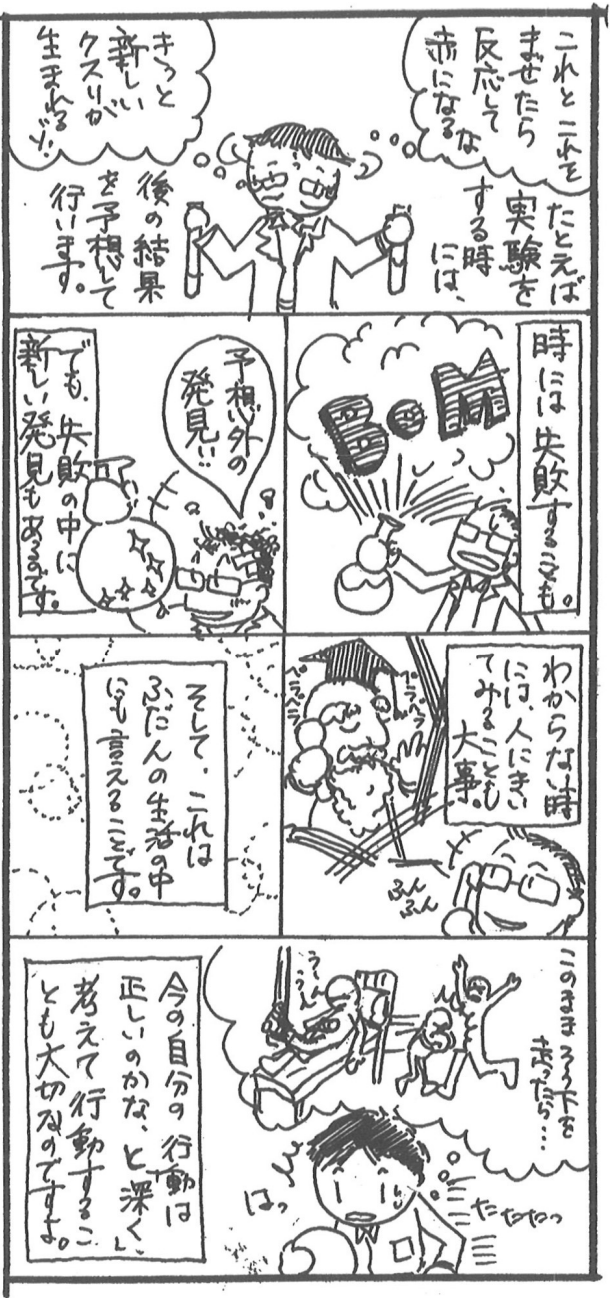 これとこれを
まぜたら
反応して
赤になるな
たとえば
実験を
する時
には、
後の結果
を予想して
行います。
きっと
新しい
クスリが
生まれるゾ!
時には失敗することも。
BoM
予想外の
発見!!
でも、失敗の中に
新しい発見もあるのです。
わからない時
には人にきい
てみることも
大事。
ペラペラ
ペラペラ
ふん
ふん
そして、これは
ふだんの生活の中
にも言えることです。
このままろう下を
走ったら…
うーん
うーん
はっ
たたたっ
今の自分の行動は
正しいのかな、と深く、
考えて行動するこ
とも大切なのですよ。